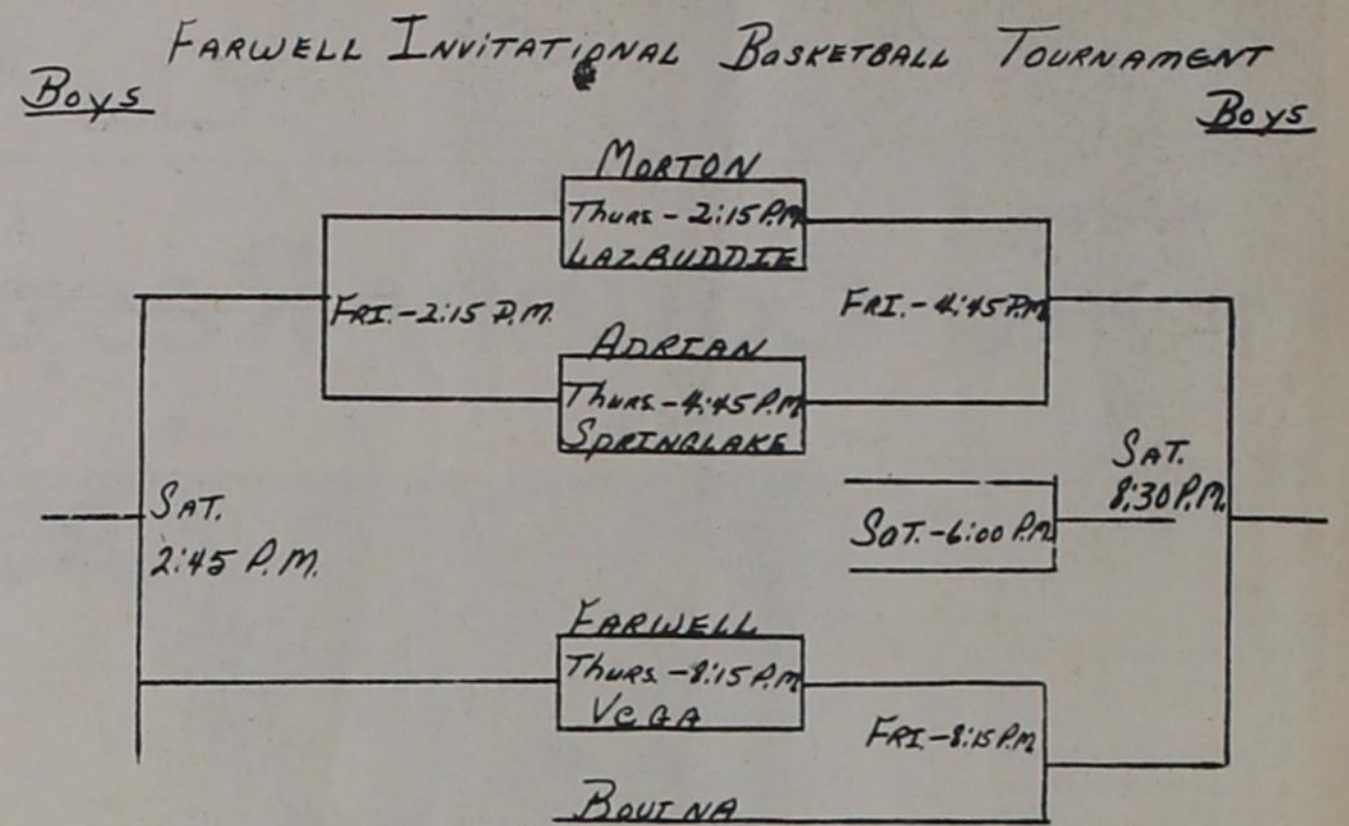 FARWELL INVITATIONAL BASKETBALL TOURNAMENT
Boys
Boys
MORTON
Thurs - 2:15 P.M.
LAZBUDDIE
FRI. - 2:15 P.M.
FRI. - 4:45 P.M.
ADRIAN
Thurs - 4:45 P.M.
SPRINGLAKE
SAT.
8:30 P.M.
SAT.
2:45 P.M.
SAT. - 6:00 P.M.
FARWELL
Thurs - 8:15 P.M.
VEGA
FRI - 8:15 P.M.
BOVINA